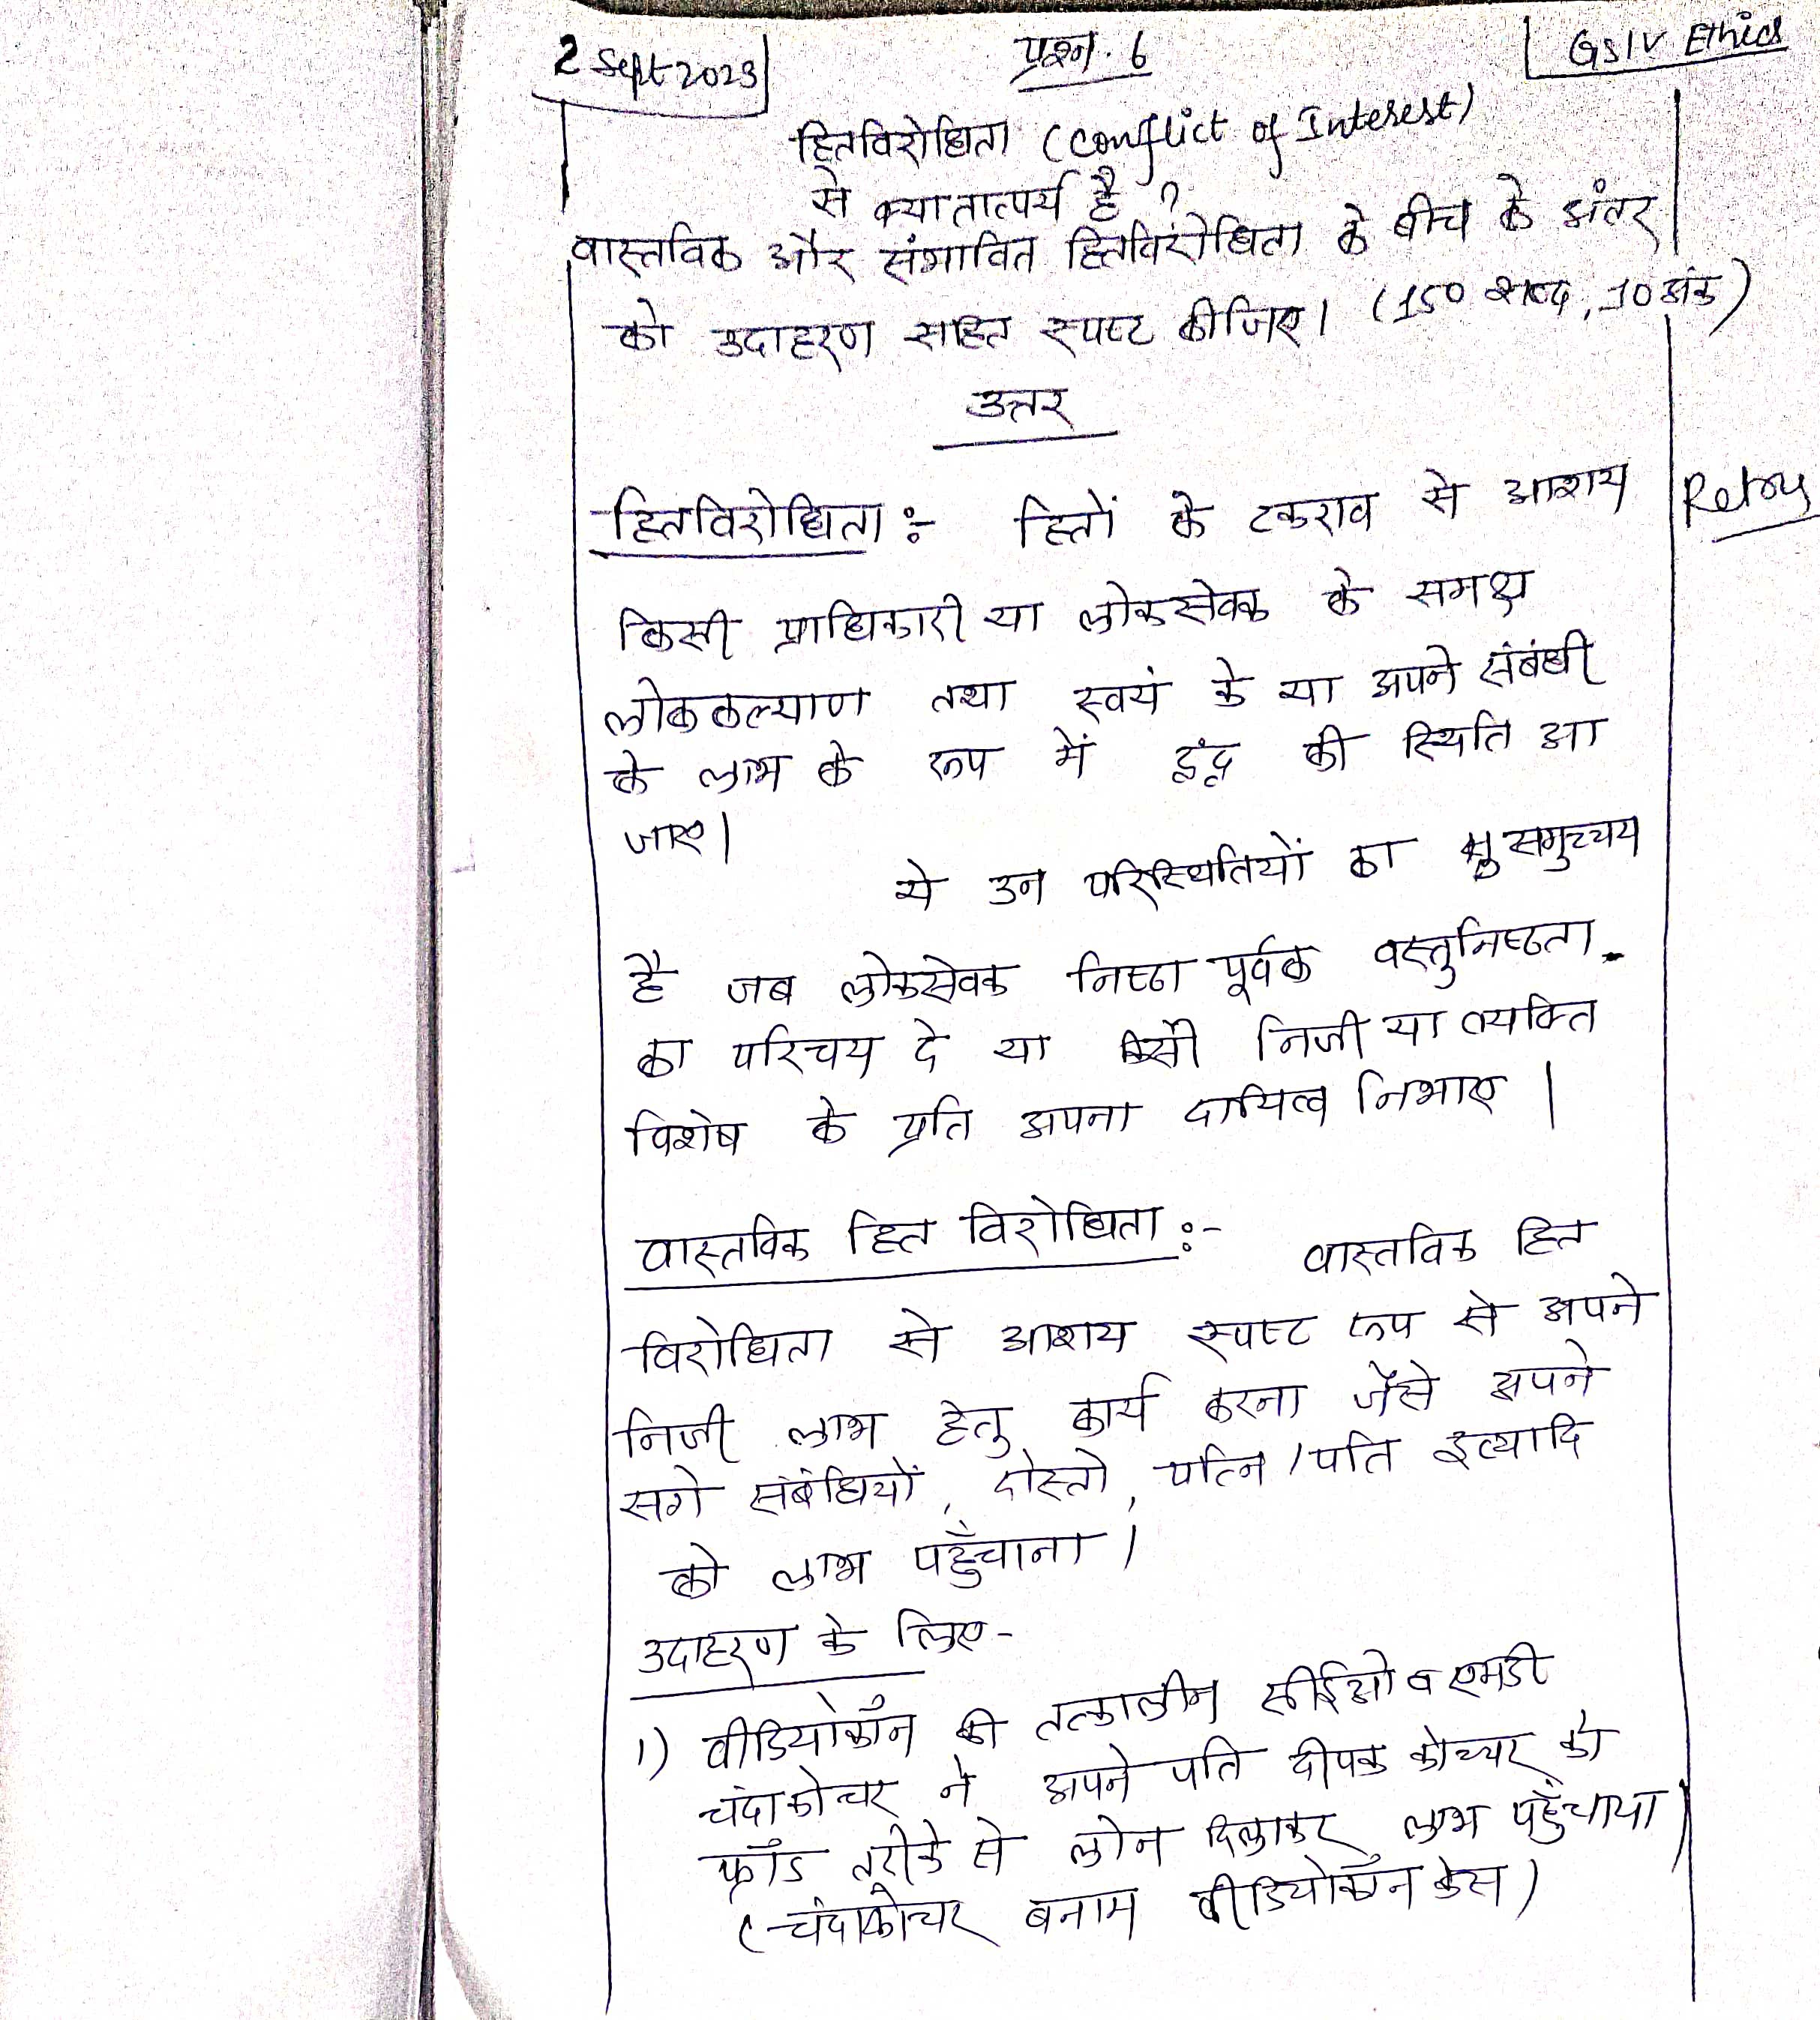 2 Sept 2023
प्रश्न. 6
GSIV Ethics
हितविरोधिता (conflict of Interest)
से क्या तात्पर्य है ?
वास्तविक और संभावित हितविरोधिता के बीच के अंतर
को उदाहरण सहित स्पष्ट कीजिए। (150 शब्द, 10 अंक)
उत्तर
हितविरोधिता :- हितों के टकराव से आशय
किसी प्राधिकारी या लोकसेवक के समक्ष
लोककल्याण तथा स्वयं के या अपने संबंधी
के लाभ के रूप में द्वंद्व की स्थिति आ
जाए।
ये उन परिस्थितियों का समुच्चय
है जब लोकसेवक निष्ठा पूर्वक वस्तुनिष्ठता
का परिचय दे या निजी या व्यक्ति
विशेष के प्रति अपना दायित्व निभाए।
वास्तविक हित विरोधिता :- वास्तविक हित
विरोधिता से आशय स्पष्ट रूप से अपने
निजी लाभ हेतु कार्य करना जैसे अपने
सगे संबंधियों, दोस्तो, पत्नि/पति इत्यादि
को लाभ पहुँचाना।
उदाहरण के लिए-
1) वीडियोकॉन की तत्कालीन सीईओ व एमडी
चंदाकोचर ने अपने पति दीपक कोच्चर को
फ्रॉड तरीके से लोन दिलाकर लाभ पहुँचाया
(चंदाकोचर बनाम वीडियोकॉन केस)